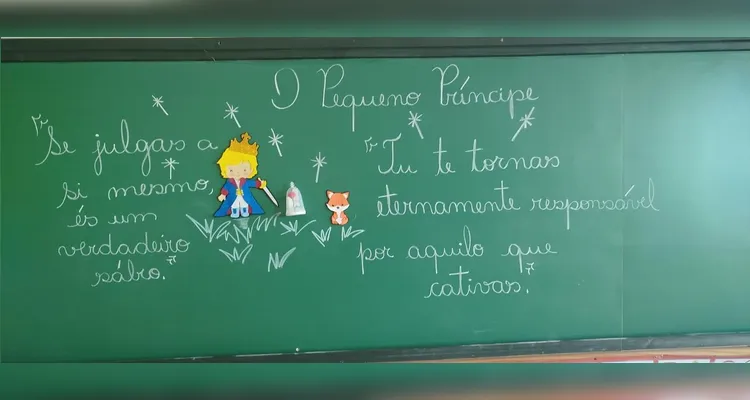 O Pequeno Príncipe
"Se julgas a
si mesmo,
és um
verdadeiro
sábio."
"Tu te tornas
eternamente responsável
por aquilo que
cativas."